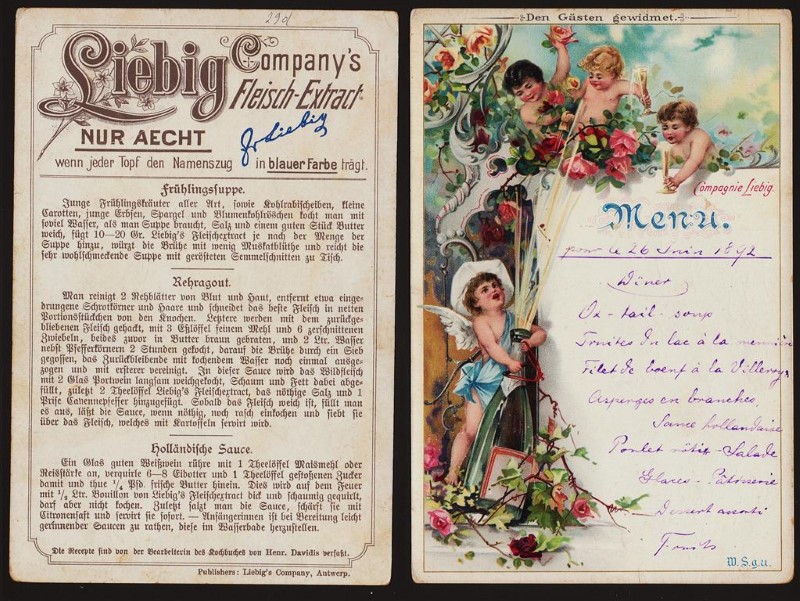 29d
Liebig Company's
Fleisch-Extract
NUR AECHT
JvLiebig
wenn jeder Topf den Namenszug in blauer Farbe trägt.
Frühlingssuppe.
Junge Frühlingskräuter aller Art, sowie Kohlrabischeiben, kleine
Carotten, junge Erbsen, Spargel und Blumenkohlröschen kocht man mit
soviel Wasser, als man Suppe braucht, Salz und einem guten Stück Butter
weich, fügt 10—20 Gr. Liebig's Fleischextract je nach der Menge der
Suppe hinzu, würzt die Brühe mit wenig Muskatblüthe und reicht die
sehr wohlschmeckende Suppe mit gerösteten Semmelschnitten zu Tisch.
Rehragout.
Man reinigt 2 Rehblätter von Blut und Haut, entfernt etwa einge-
drungene Schrotkörner und Haare und schneidet das beste Fleisch in netten
Portionsstückchen von den Knochen. Letztere werden mit dem zurückge-
bliebenen Fleisch gehackt, mit 3 Eßlöffel feinem Mehl und 6 zerschnittenen
Zwiebeln, beides zuvor in Butter braun gebraten, und 2 Ltr. Wasser
nebst Pfefferkörnern 2 Stunden gekocht, darauf die Brühe durch ein Sieb
gegossen, das Zurückbleibende mit kochendem Wasser noch einmal ausge-
zogen und mit ersterer vereinigt. In dieser Sauce wird das Wildfleisch
mit 2 Glas Portwein langsam weichgekocht, Schaum und Fett dabei abge-
füllt, zuletzt 2 Theelöffel Liebig's Fleischextract, das nöthige Salz und 1
Prise Cayennepfeffer hinzugefügt. Sobald das Fleisch weich ist, füllt man
es aus, läßt die Sauce, wenn nöthig, noch rasch einkochen und siebt sie
über das Fleisch, welches mit Kartoffeln servirt wird.
Holländische Sauce.
Ein Glas guten Weißwein rühre mit 1 Theelöffel Maismehl oder
Reisstärke an, verquirle 6—8 Eidotter und 1 Theelöffel gestoßenen Zucker
damit und thue ¼ Pfd. frische Butter hinein. Dies wird auf dem Feuer
mit ½ Ltr. Bouillon von Liebig's Fleischextract dick und schaumig gequirlt,
darf aber nicht kochen. Zuletzt salzt man die Sauce, schärft sie mit
Citronensaft und servirt sie sofort. — Anfängerinnen ist bei Bereitung leicht
gerinnender Saucen zu rathen, diese im Wasserbade herzustellen.
Die Recepte sind von der Bearbeiterin des Kochbuches von Henr. Davidis verfaßt.
Publishers: Liebig's Company, Antwerp.
Den Gästen gewidmet.
Compagnie Liebig.
Menu.
pour le 26 Juin 1892
Dîner
Ox-tail-soup
Truites du lac à la meunière
Filet de boeuf à la Villeroy
Asperges en branches,
Sauce hollandaise
Poulet rôti - Salade
Glaces - Pâtisserie
Dessert assorti
Fruits
W. S. g. u.